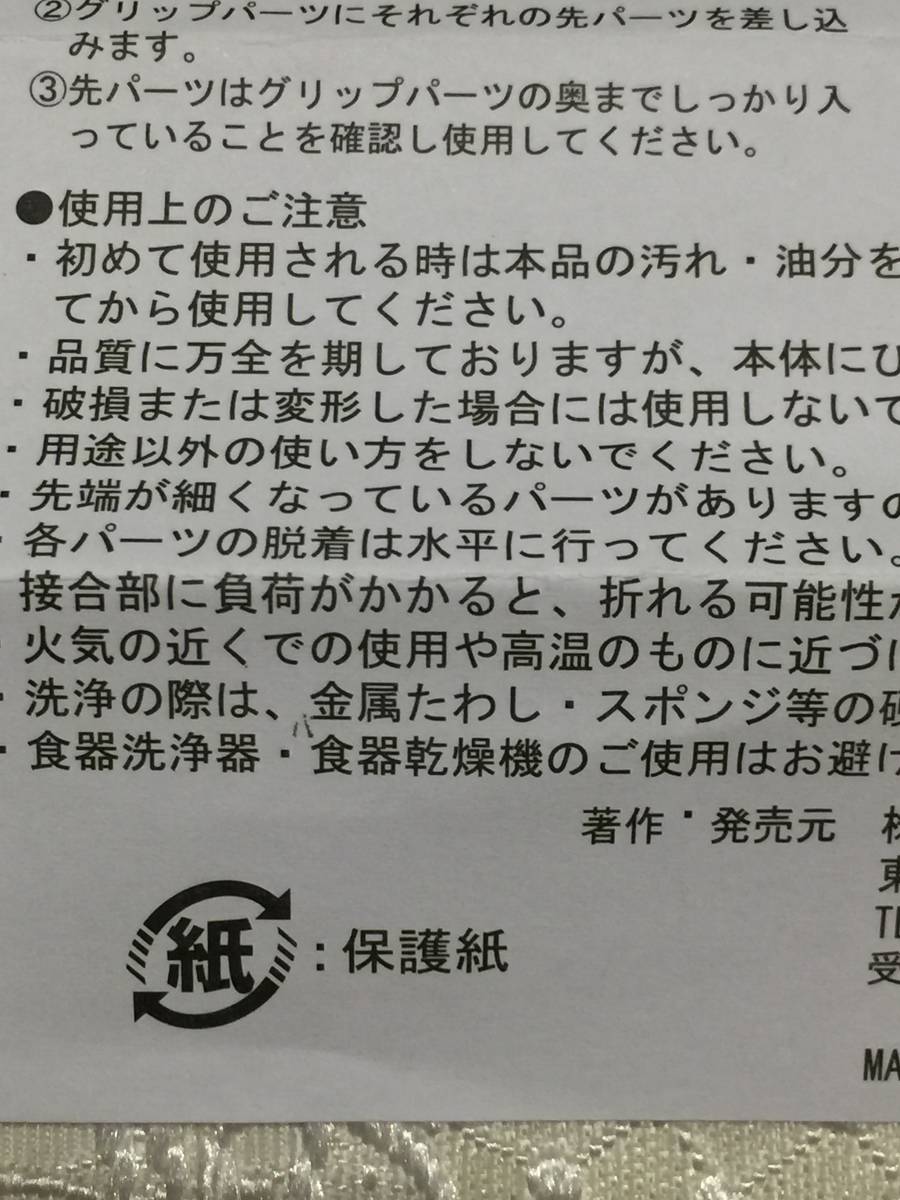 ②グリップパーツにそれぞれの先パーツを差し込
みます。
③先パーツはグリップパーツの奥までしっかり入
っていることを確認し使用してください。
●使用上のご注意
・初めて使用される時は本品の汚れ・油分を
てから使用してください。
・品質に万全を期しておりますが、本体にひ
・破損または変形した場合には使用しないで
・用途以外の使い方をしないでください。
・先端が細くなっているパーツがありますの
・各パーツの脱着は水平に行ってください。
接合部に負荷がかかると、折れる可能性が
・火気の近くでの使用や高温のものに近づけ
・洗浄の際は、金属たわし・スポンジ等の硬
・食器洗浄器・食器乾燥機のご使用はお避け
著作・発売元 株
東
TE
受
MA
紙:保護紙